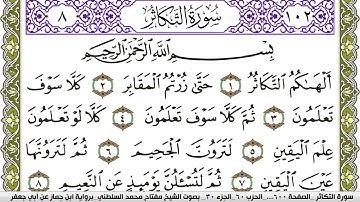 ٨ سُورَةُ التَّكَاثُرِ ١٠٢
بِسْمِ اللَّهِ الرَّحْمَٰنِ الرَّحِيمِ
أَلْهَاكُمُ التَّكَاثُرُ ١ حَتَّىٰ زُرْتُمُ الْمَقَابِرَ ٢ كَلَّا سَوْفَ
تَعْلَمُونَ ٣ ثُمَّ كَلَّا سَوْفَ تَعْلَمُونَ ٤ كَلَّا لَوْ تَعْلَمُونَ
عِلْمَ الْيَقِينِ ٥ لَتَرَوُنَّ الْجَحِيمَ ٦ ثُمَّ لَتَرَوُنَّهَا
عَيْنَ الْيَقِينِ ٧ ثُمَّ لَتُسْأَلُنَّ يَوْمَئِذٍ عَنِ النَّعِيمِ ٨
سورة التكاثر الصفحة ٦٠٠ ... الحزب ٦٠ الجزء ٣٠ بصوت الشيخ مفتاح محمد السلطني برواية ابن جماز عن أبي جعفر